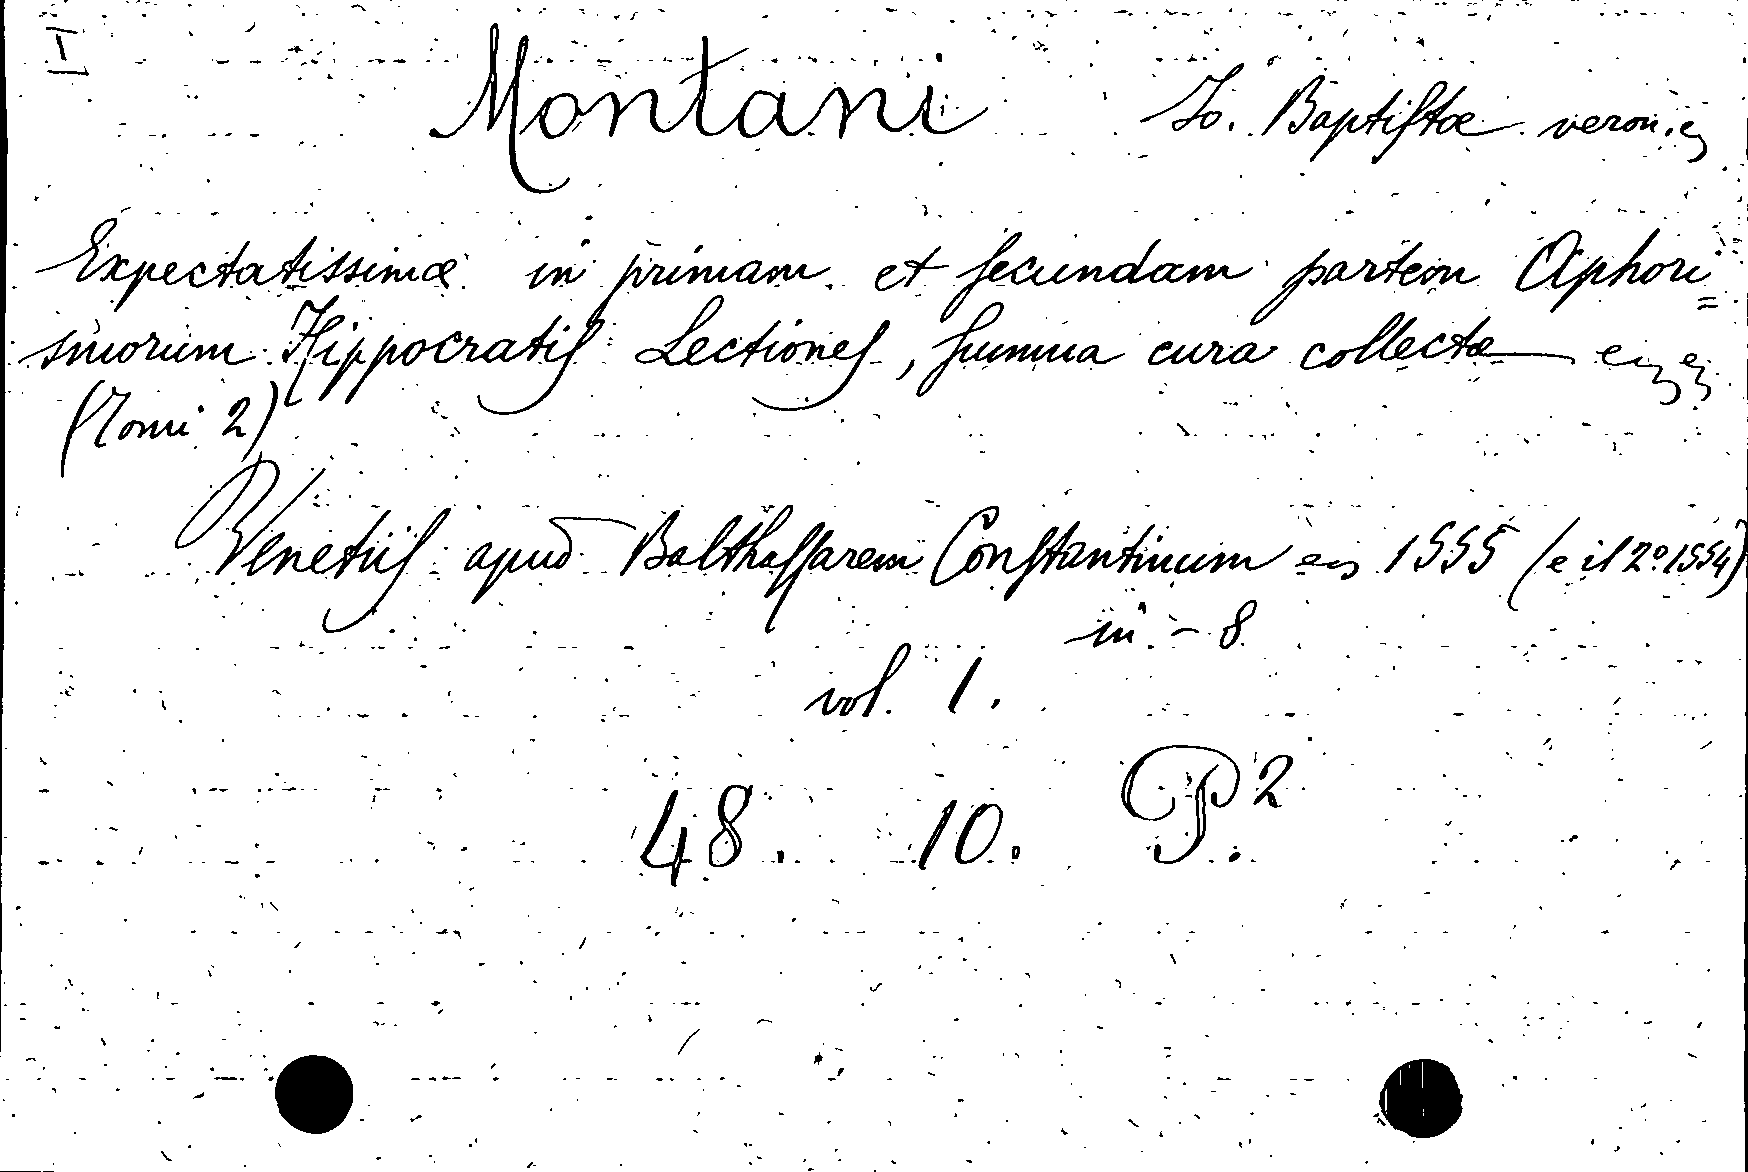 Montani Jo. Baptistæ veron. &
Expectatissimæ in primam et secundam partem Apho­ri=
smorum Hippocratis Lectiones, summa cura collectæ
(Tomi 2)
Venetiis apud Balthassarem Constantinum 1555 (e il 2º 1554)
in - 8
vol. 1.
48. 10. P.2